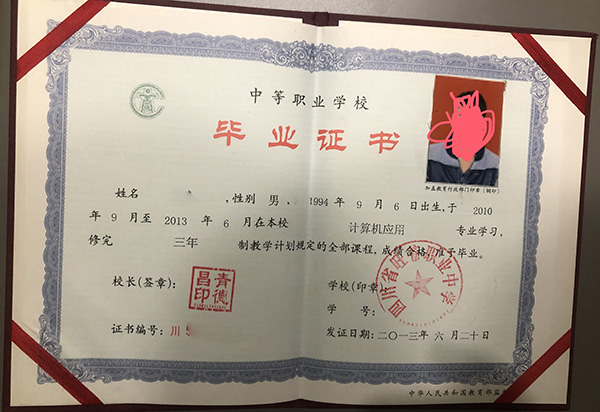 中等职业学校
毕业证书
加盖教育行政部门印章（钢印）
姓名 ,性别 男, 1994 年 9 月 6 日出生,于 2010
年 9 月至 2013 年 6 月在本校 计算机应用 专业学习,
修完 三年 制教学计划规定的全部课程,成绩合格,准予毕业。
校长(签章):
学校(印章):
学 号:
证书编号: 川
发证日期:二〇一三年 六 月二十日
中华人民共和国教育部监